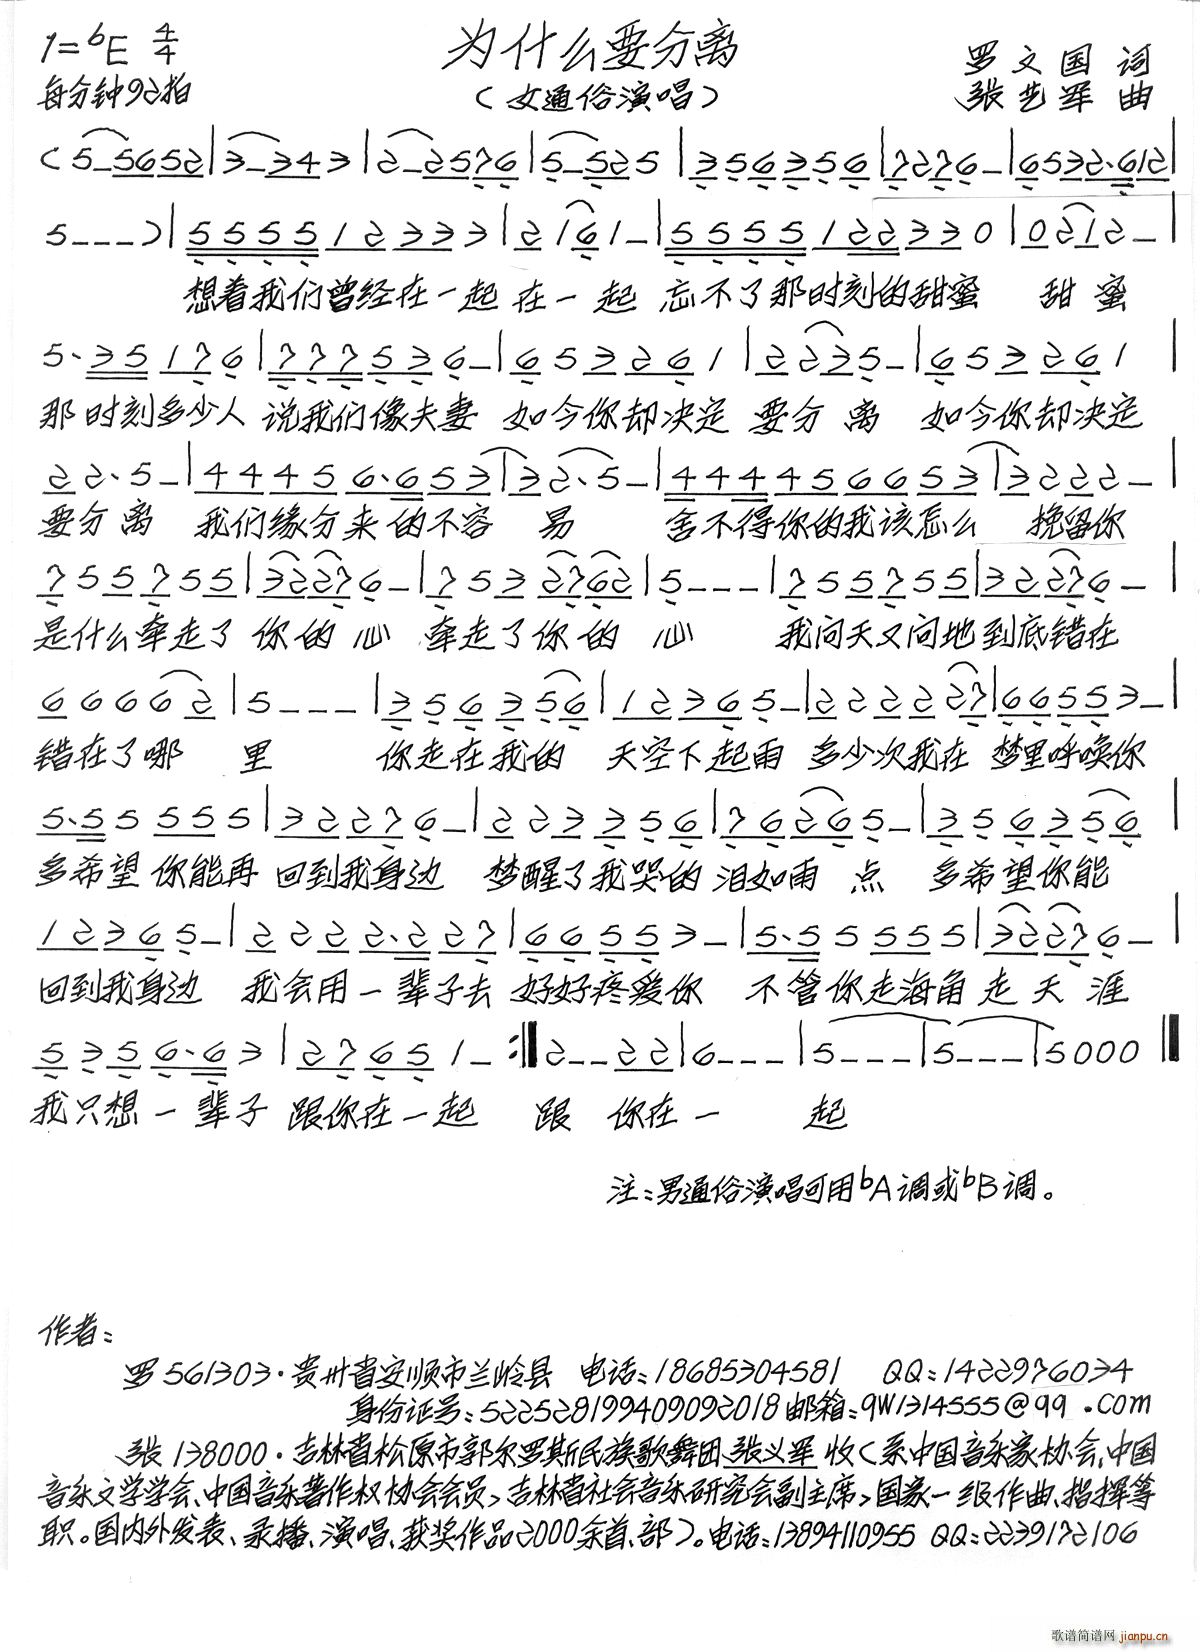 1=ᵇE 4/4
为什么要分离
每分钟92拍
(女通俗演唱)
罗文国 词
张艺军 曲
(5-5652|3-343|2-2576|5-525|356356|7276-|6532·612|
5---)|555512333|2161-|555512233 0|0212-|
想着我们曾经在一起在一起 忘不了那时刻的甜蜜 甜蜜
5·35176|777536-|653261|2235-|653261|
那时刻多少人 说我们像夫妻 如今你却决定 要分离 如今你却决定
22·5-|44456·653|32·5-|444566653|3222-|
要分离 我们缘分来的不容易 舍不得你的我该怎么 挽留你
755755|32276-|7532762|5---|755755|32276-|
是什么牵走了你的心 牵走了你的心 我问天又问地到底错在
66662|5---|356356|12365-|2222227|66553-|
错在了哪里 你走在我的 天空下起雨 多少次我在 梦里呼唤你
5·55555|32276-|223356|76265-|356356|
多希望你能再 回到我身边 梦醒了我哭的泪如雨点 多希望你能
12365-|2222·227|66553-|5·55555|32276-|
回到我身边 我会用一辈子去 好好疼爱你 不管你走海角走天涯
5356·63|27651-:‖2--22|6---|5---|5---|5000‖
我只想一辈子 跟你在一起 跟你在一起
注:男通俗演唱可用ᵇA调或ᵇB调。
作者:
罗561303·贵州省安顺市兰岭县 电话:18685304581 QQ:1422976034
身份证号:522528199409092018邮箱:qw1314555@qq.com
张138000·吉林省松原市郭尔罗斯民族歌舞团张义军收(系中国音乐家协会、中国
音乐文学学会、中国音乐著作权协会会员,吉林省社会音乐研究会副主席,国家一级作曲、指挥等
职。国内外发表、录播、演唱、获奖作品2000余首、部)。电话:13894110955 QQ:2239172106
歌谱简谱网 jianpu.cn